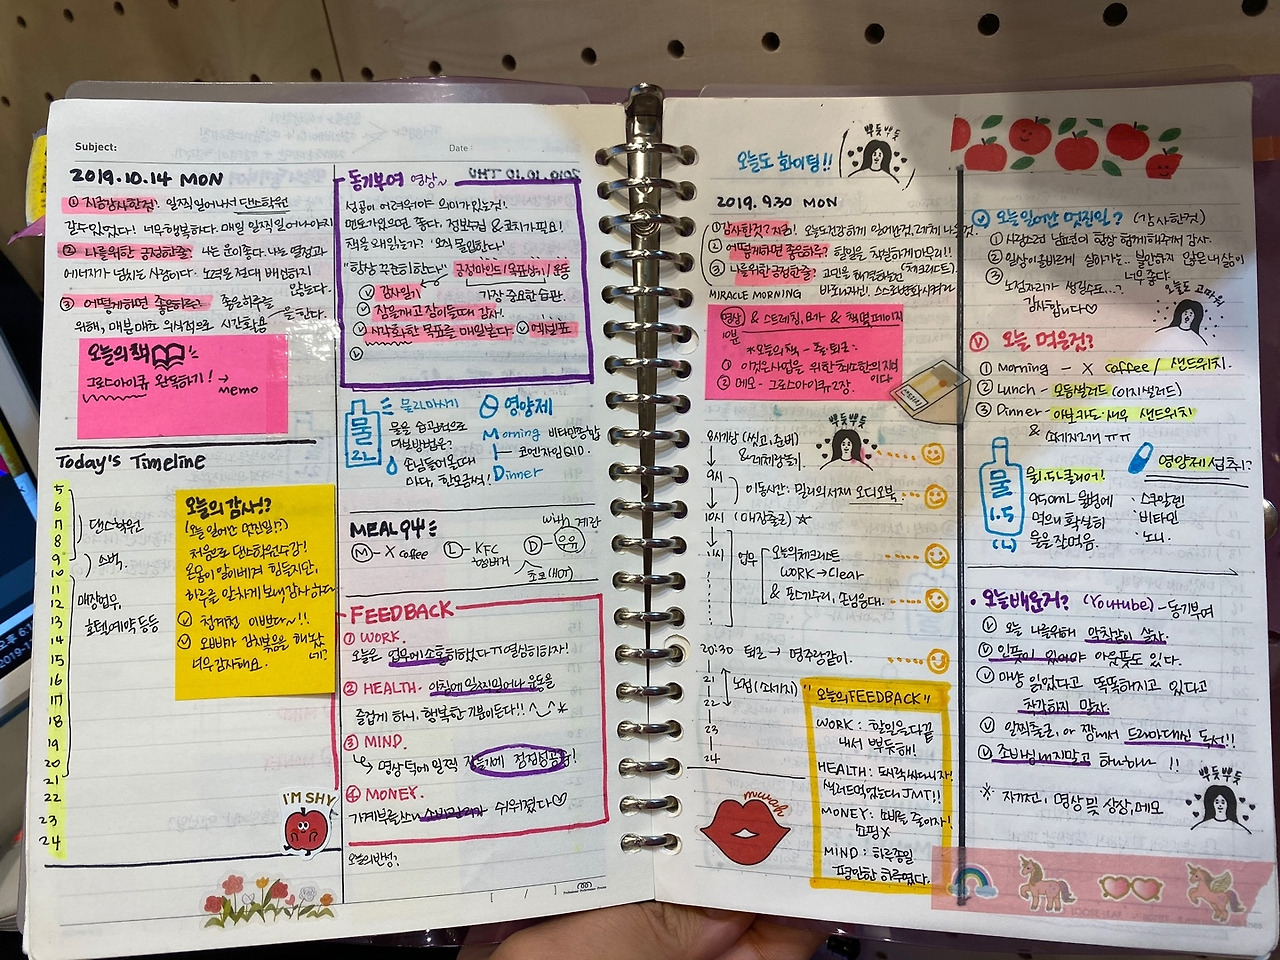 Subject:
Date :
2019.10.14 MON
① 지금감사한것? 일찍일어나서 댄스학원
갈수있었다! 너무행복하다. 매일 일찍일어나야지
② 나를위한 긍정한줄? 나는 운이좋다. 나는 열정과
에너지가 넘치는 사람이다. 노력은 절대 배반하지
않는다.
③ 어떻게하면 좋은하루? 좋은하루를
위해, 매분매초 의식적으로 시간활용을 한다.
오늘의 책
그로스아이큐 완독하기! → memo
Today's Timeline
5
6
7
8
9
10
11
12
13
14
15
16
17
18
19
20
21
22
23
24
댄스학원
매장업무,
호텔예약 등등
오늘의 감사?
(오늘 일어난 멋진일?)
처음으로 댄스학원수강!
온몸이 알이베겨 힘들지만,
하루를 알차게 보내 감사하다
청계천 이쁘다~!!
오빠가 김치볶음을 해놨네?
너무감사해요.
I'M SHY
동기부여 영상~
2019.10.10 THU
성공이 어려워야 의미가있는것!
멘토가있으면 좋다. 정보수님 & 코치가필요!
책을 왜읽는가? '오직 몰입한다'
"항상 꾸준히한다" 긍정마인드 (목표상기) 운동
감사일기 가장 중요한 습관.
잠들깨고 잠이들때 감사!
시각화한 목표를 매일본다.
물 2L
물마시기
물을 습관적으로
마실방법은?
마다, 한모금씩!
영양제
Morning 비타민종합
L 코엔자임Q10.
Dinner
MEAL
M - X coffee
L - KFC
햄버거
D - 우유
with 계란
초코(HOT)
FEEDBACK
① WORK.
오늘은 업무에 소홀히했다ㅠ 열심히하자!
② HEALTH. 아침에 일찍일어나 운동을
즐겁게 하니, 행복한 기분이든다!! ^_^*
③ MIND.
④ MONEY.
가계부를쓰니 소비관리가 쉬워졌다♡
오늘의반성?
오늘도 화이팅!!
뿌듯뿌듯
2019. 9.30 MON
① 감사한것? 지금! 오늘도건강하게 일어난것.
② 어떻게하면 좋은하루? 할일을 착실하게마무리!
③ 나를위한긍정한줄? 고민을 해결하는건 (체크리스트).
MIRACLE MORNING
명상 & 스트레칭, 요가 & 책몇페이지
10분
*오늘의책 - 줄퇴근
① 이것은사업을 위한 최소한의지식이다
② 메모 - 그로스아이큐 2장.
뿌듯뿌듯
8시기상 (씻고,준비)
9시
이동시간: 밀리의서재 오디오북
10시 (매장출근) ☆
11시
업무
오늘의체크리스트
WORK → Clear
& 포스기수리, 손님응대.
20:30 퇴근 → 명주랑같이.
21
22
23
24
노점 (소세지)
"오늘의 FEEDBACK"
WORK : 할일을다끝
내서 뿌듯해!
HEALTH : 도시락싸다니자!
샐러드먹었는데 JMT!!
MONEY : 뽀삐를 줄이자!
쇼핑X
MIND : 하루종일
평안한 하루였다.
muah
오늘일어난 멋진일? (감사한것)
① 사랑스런 남편이 항상 함께해주께 감사.
② 일상이올바르게 살아가는.. 불안하지 않은 내 삶이
너무좋다.
③ 노점자리가 생길수도...?
감사합니다♡
오늘도 고마워
오늘 먹은것?
① Morning - X coffee / 샌드위치.
② Lunch - 모둠샐러드 (이지샐러드)
③ Dinner - 아보카도 새우 샌드위치
& 소세지2개 ㅠㅠ
물 1.5 (L)
물1.5L클리어!
950ml 물병에
먹으니 확실히
물을 잘먹음.
영양제섭취?
· 스쿠알렌
· 비타민
· 노니.
· 오늘배운거? (Youtube) - 동기부여
오늘 나를위해 악착같이 살자.
인풋이 있어야 아웃풋도 있다.
매양 읽었다고 똑똑해지고 있다고
자각하지 말자.
일찍출근, or 잼버서 드라마대신 독서!!
조바심내지말고 하나하나 !!
※ 자기전, 명상 및 상상, 메모
뿌듯뿌듯